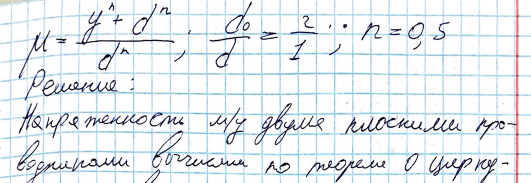 μ = (yⁿ + dⁿ) / dⁿ ; d₀/d = 2/1 ; n = 0,5
Решение:
Напряженность м/у двумя плоскими про-
водниками вычислим по теореме о цирку-